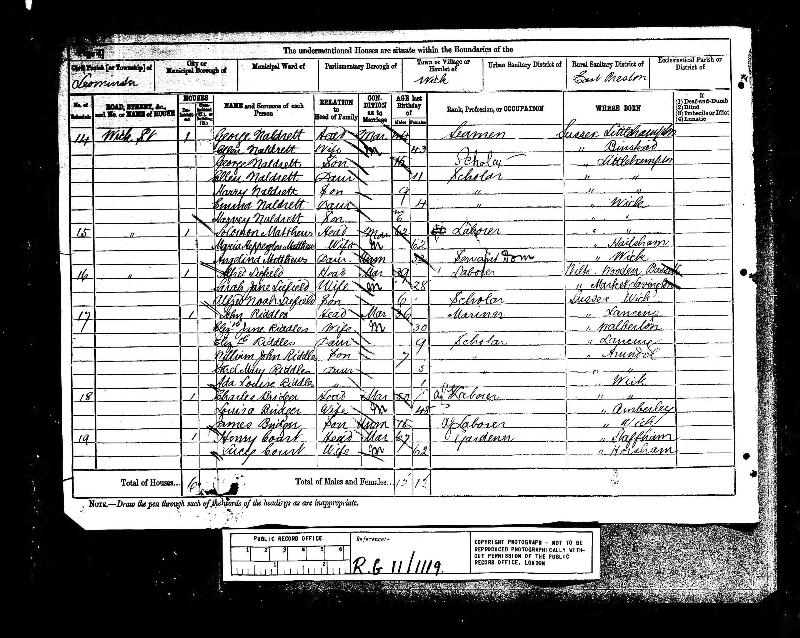 The undermentioned Houses are situate within the Boundaries of the
Civil Parish [or Township] of
City or Municipal Borough of
Municipal Ward of
Parliamentary Borough of
Town or Village or Hamlet of
Urban Sanitary District of
Rural Sanitary District of
Ecclesiastical Parish or District of
Leominster Wick East Preston
No. of Schedule
ROAD, STREET, &c., and No. or NAME of HOUSE
HOUSES
NAME and Surname of each Person
RELATION to Head of Family
CONDITION as to Marriage
AGE last Birthday of
Males Females
Rank, Profession, or OCCUPATION
WHERE BORN
If
(1) Deaf-and-Dumb
(2) Blind
(3) Imbecile or Idiot
(4) Lunatic
14 Wick St 1 George Naldrett Head Mar Seamen Sussex Littlehampton
Ellen Naldrett Wife M 43 " Binsted
George Naldrett Son 15 Scholar " Littlehampton
Ellen Naldrett Daur 11 Scholar " "
Harry Naldrett Son 9 " " "
Emma Naldrett Daur 4 " " Wick
Harvey Naldrett Son " "
15 " 1 Solomon Matthews Head Mar 62 Laborer " "
Maria Matthews Wife M 62 " Hailsham
Angelina Matthews Daur Unm Servant Dom " Wick
16 " 1 Head Mar 29 Laborer Wilts
Sarah Jane Wife M 28 " Market Lavington
Alfred Noah Son 6 Scholar Sussex Wick
17 1 John Riddles Head Mar 36 Mariner " Lancing
Elizth Jane Riddles Wife M 30 " Walberton
Elizth Riddles Daur 9 Scholar " Lancing
William John Riddles Son 7 " Arundel
Mary Riddles Daur 5 " "
Ada Louise Riddles " 1 " Wick
18 1 Charles Bridger Head Mar Ag Laborer " "
Louisa Bridger Wife M 45 " Amberley
James Bridger Son Unm 15 Ag Laborer " Wick
19 1 Henry Court Head Mar 67 Gardener " Staffham
Lucy Court Wife M 62 " Horsham
Total of Houses... 6
Total of Males and Females... 12 12
NOTE.—Draw the pen through such of the words of the headings as are inappropriate.
PUBLIC RECORD OFFICE
1 2 3 4 5 6
1 2
Reference:-
R.G 11/1119
COPYRIGHT PHOTOGRAPH - NOT TO BE REPRODUCED PHOTOGRAPHICALLY WITHOUT PERMISSION OF THE PUBLIC RECORD OFFICE, LONDON